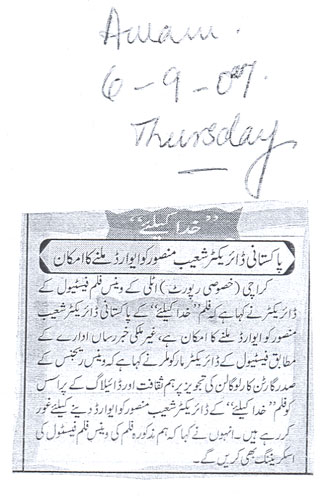 Awam.
6-9-07.
Thursday
"خدا کیلئے"
پاکستانی ڈائریکٹر شعیب منصور کو ایوارڈ ملنے کا امکان
کراچی (خصوصی رپورٹ) اٹلی کے وینس فلم فیسٹیول کے
ڈائریکٹر نے کہا ہے کہ فلم "خدا کیلئے" کے پاکستانی ڈائریکٹر شعیب
منصور کو ایوارڈ ملنے کا امکان ہے، غیر ملکی خبر رساں ادارے کے
مطابق فیسٹیول کے ڈائریکٹر مارکو ملر نے کہا ہے کہ وینس ریجنس کے
صدر گارٹن کارلو گالن کی تجویز پر ہم ثقافت اور ڈائیلاگ کے پراسس
کو فلم "خدا کیلئے" کے ڈائریکٹر شعیب منصور کو ایوارڈ دینے کیلئے غور
کر رہے ہیں۔ انہوں نے کہا کہ ہم مذکورہ فلم کی وینس فلم فیسٹول کی
اسکریننگ بھی کریں گے۔